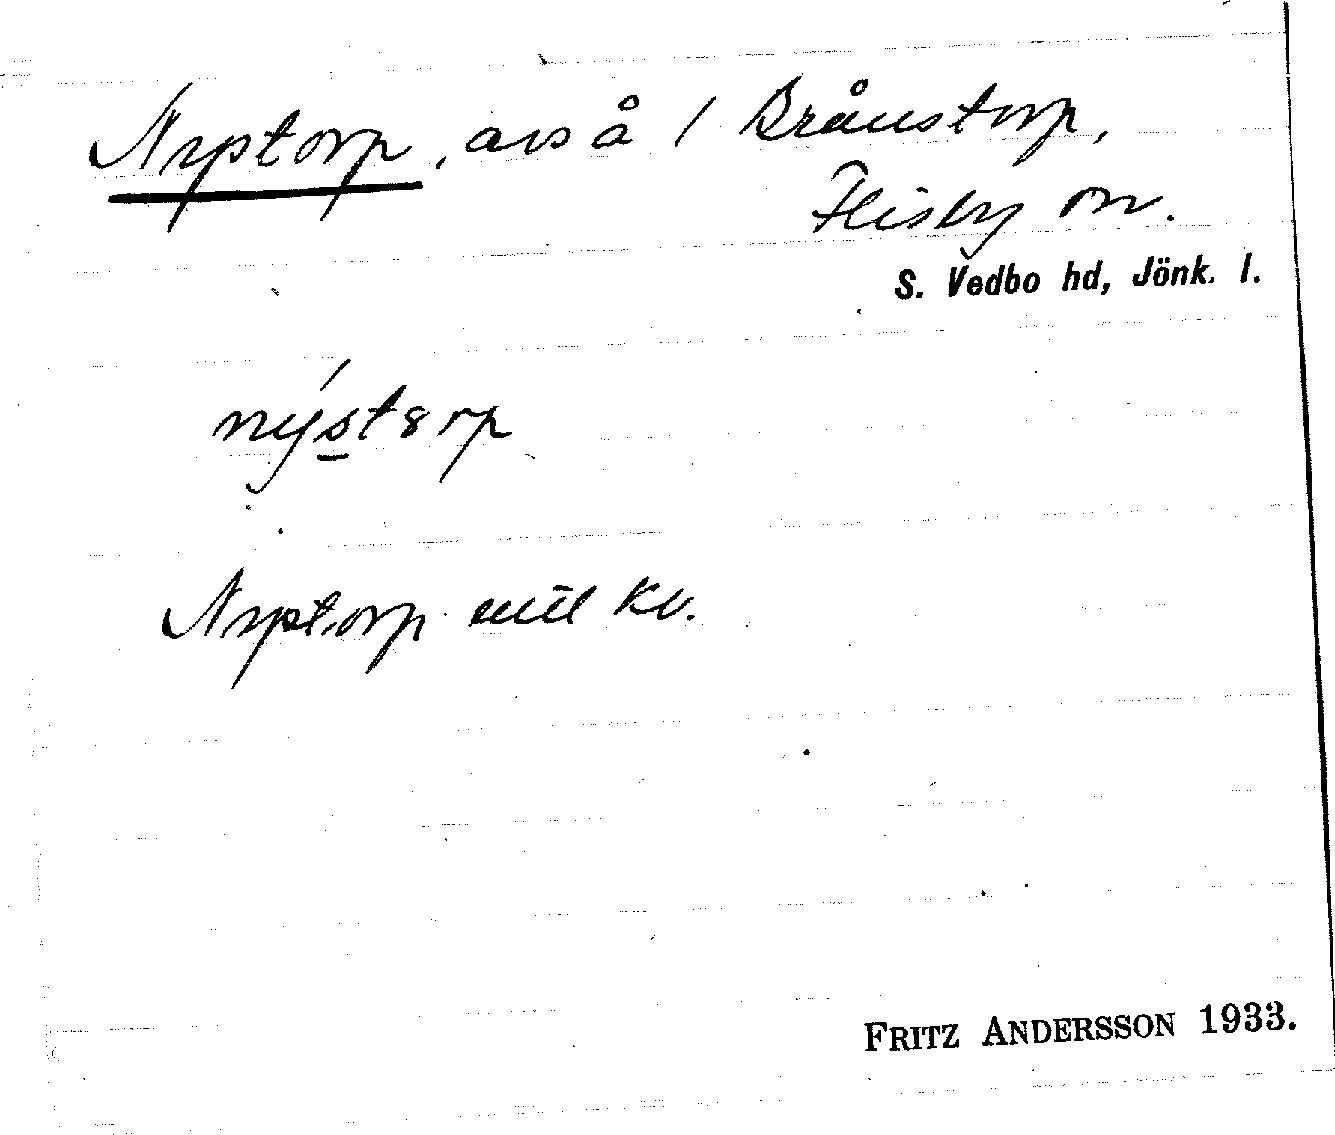 Nystorp, avs å / Brånstorp,
Flisby sn.
S. Vedbo hd, Jönk. l.
nýst8rp
Nystorp enl kv.
FRITZ ANDERSSON 1933.